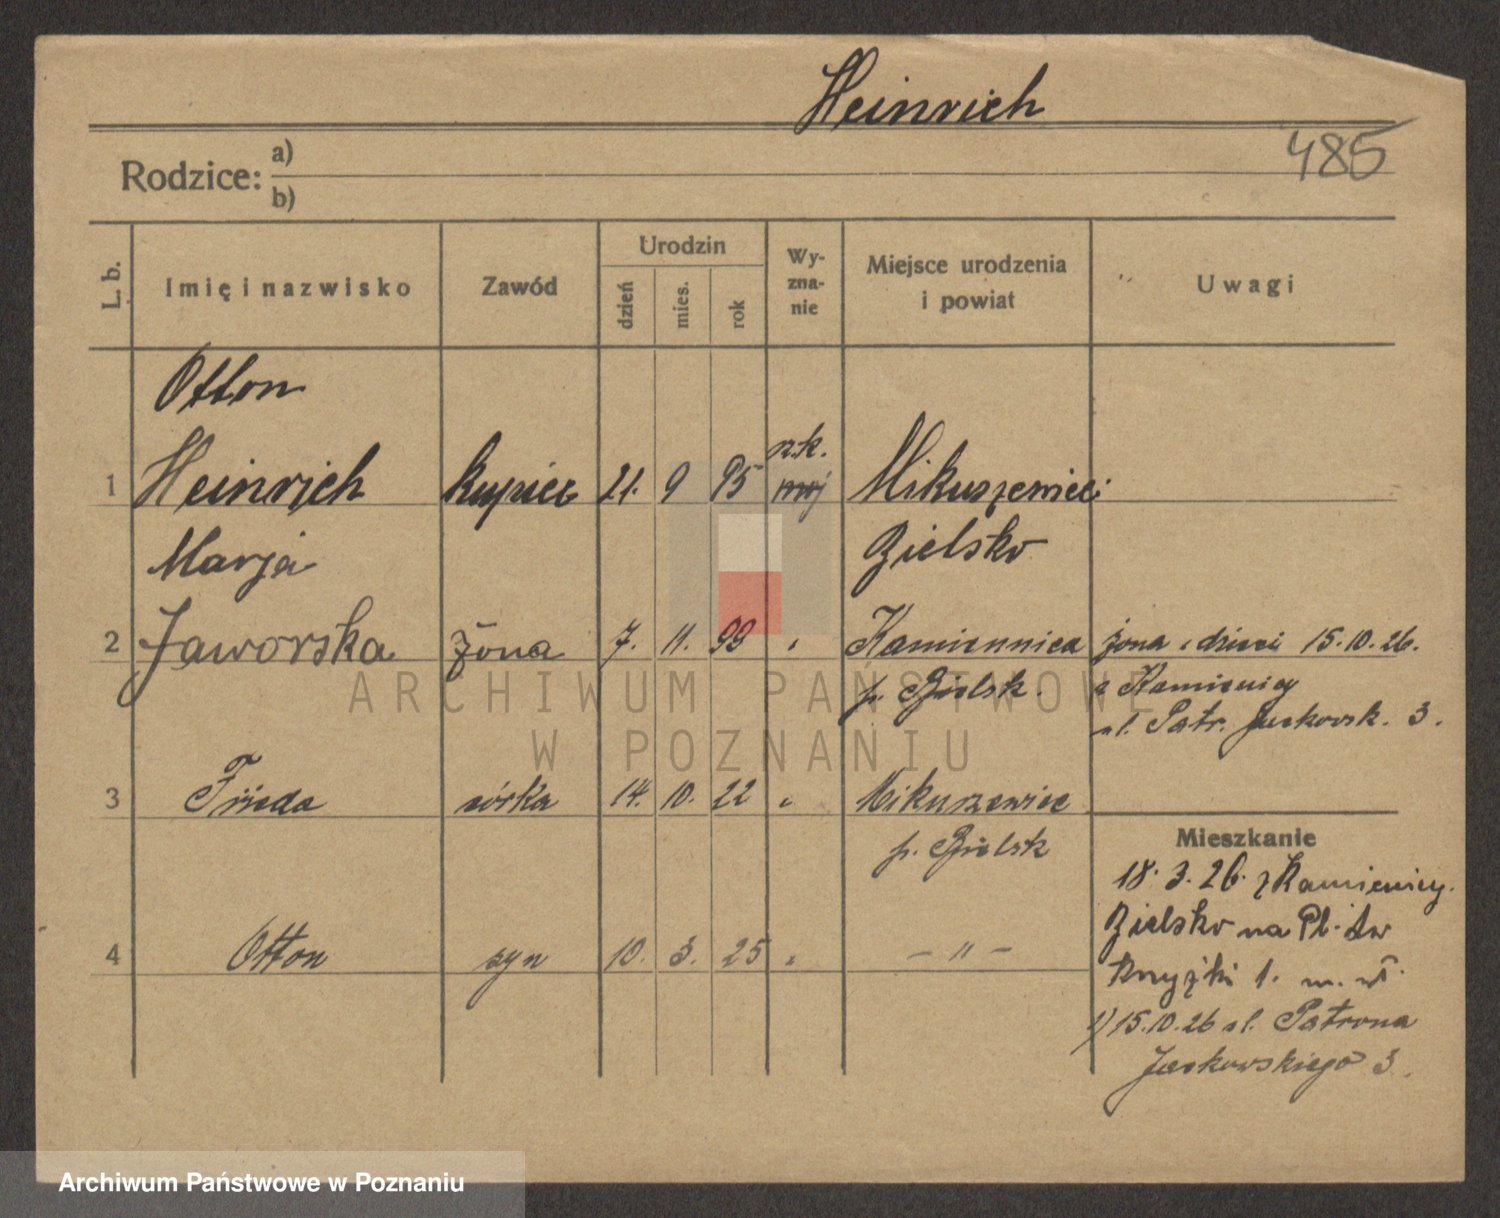 Heinrich
485
Rodzice: a)
b)
L. b.
Imię i nazwisko
Zawód
Urodzin
dzień
mies.
rok
Wy-
zna-
nie
Miejsce urodzenia
i powiat
Uwagi
Otton
1 Heinrich kupiec 21. 9 95 rz.k. Mikuszewice
Marja Bielsko
2 Jaworska żona 7. 11. 99 " Kamiennica żona i dzieci 15.10.26.
p. Bielsk. z Kamienicy
ul. Patr. Jackowsk. 3.
3 Frieda córka 14. 10. 22 " Mikuszewice
p. Bielsk
Mieszkanie
18. 3. 26. z Kamienicy.
Bielsko na Pl. Św
4 Otton syn 10. 3. 25 " — " —
Krzyżki 1. m. wł.
1) 15.10.26 ul. Patrona
Jackowskiego 3.
ARCHIWUM PAŃSTWOWE
W POZNANIU
Archiwum Państwowe w Poznaniu